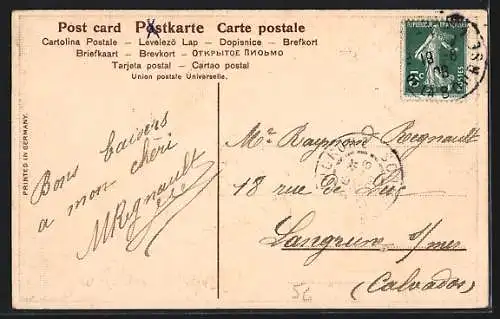 Post card Postkarte Carte postale
Cartolina Postale – Levelező Lap – Dopisnice – Brefkort
Briefkaart – Brevkort – ОТКРЫТОЕ ПИСЬМО
Tarjeta postal – Cartao postal
Union postale Universelle.
PRINTED IN GERMANY.
Bons baisers
a mon chéri
MRegnault
Mr Raymond Regnault
18 rue de Luc
Langrune s/mer
(Calvados)
56